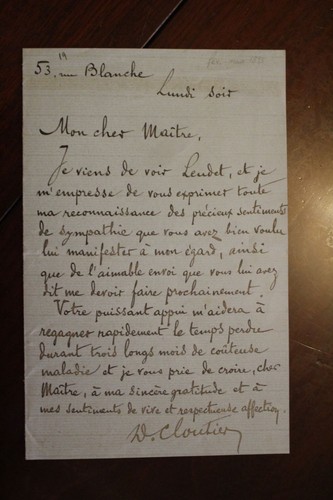 53, rue Blanche
Lundi soir
Mon cher Maître,
Je viens de voir Leudet, et je
m'empresse de vous exprimer toute
ma reconnaissance des précieux sentiments
de sympathie que vous avez bien voulu
lui manifester à mon égard, ainsi
que de l'aimable envoi que vous lui avez
dit me devoir faire prochainement.
Votre puissant appui m'aidera à
regagner rapidement le temps perdu
durant trois longs mois de coûteuse
maladie et je vous prie de croire, cher
Maître, à ma sincère gratitude et à
mes sentiments de vive et respectueuse affection.
D. Cloutier